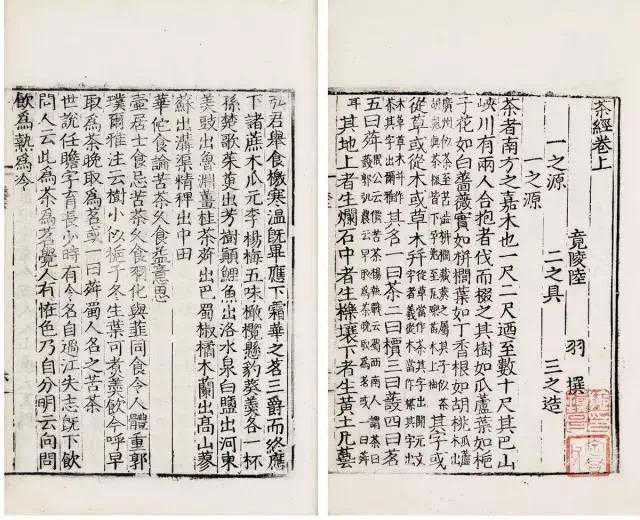 茶經卷上
竟陵陸 羽 撰
一之源 二之具 三之造
一之源
茶者南方之嘉木也一尺二尺迺至數十尺其巴山
峽川有兩人合抱者伐而掇之其樹如瓜蘆葉如梔
子花如白薔薇實如栟櫚葉如丁香根如胡桃瓜蘆木出
廣州似茶至苦澁栟櫚蒲葵之屬其子似茶胡桃與茶根皆下孕兆至瓦礫苗木上抽其字或
從草或從木或草木并從草當作茶其字出開元文字音義從木當作㮈其字出本
草草木并作荼其字出爾雅其名一曰茶二曰檟三曰蔎四曰茗
五曰荈周公云檟苦荼揚執戟云蜀西南人謂茶曰蔎郭弘農云早取為茶晚取為茗或一曰荈
耳其地上者生爛石中者生櫟壤下者生黃土凡藝
弘君舉食檄寒溫既畢應下霜華之茗三爵而終應
下諸蔗木瓜元李楊梅五味橄欖懸豹葵羮各一杯
孫楚歌茱萸出芳樹顛鯉魚出洛水泉白鹽出河東
美豉出魯淵薑桂茶荈出巴蜀椒橘木蘭出高山蓼
蘇出溝渠精稗出中田
華佗食論苦茶久食益意思
壺居士食忌苦茶久食羽化與韭同食令人體重郭
璞爾雅注云樹小似梔子冬生葉可煮羮飲今呼早
取為茶晚取為茗或一曰荈蜀人名之苦茶
世說任瞻字育長少時有令名自過江失志既下飲
問人云此為茶為茗覺人有怪色乃自分明云向問
飲為熱為冷